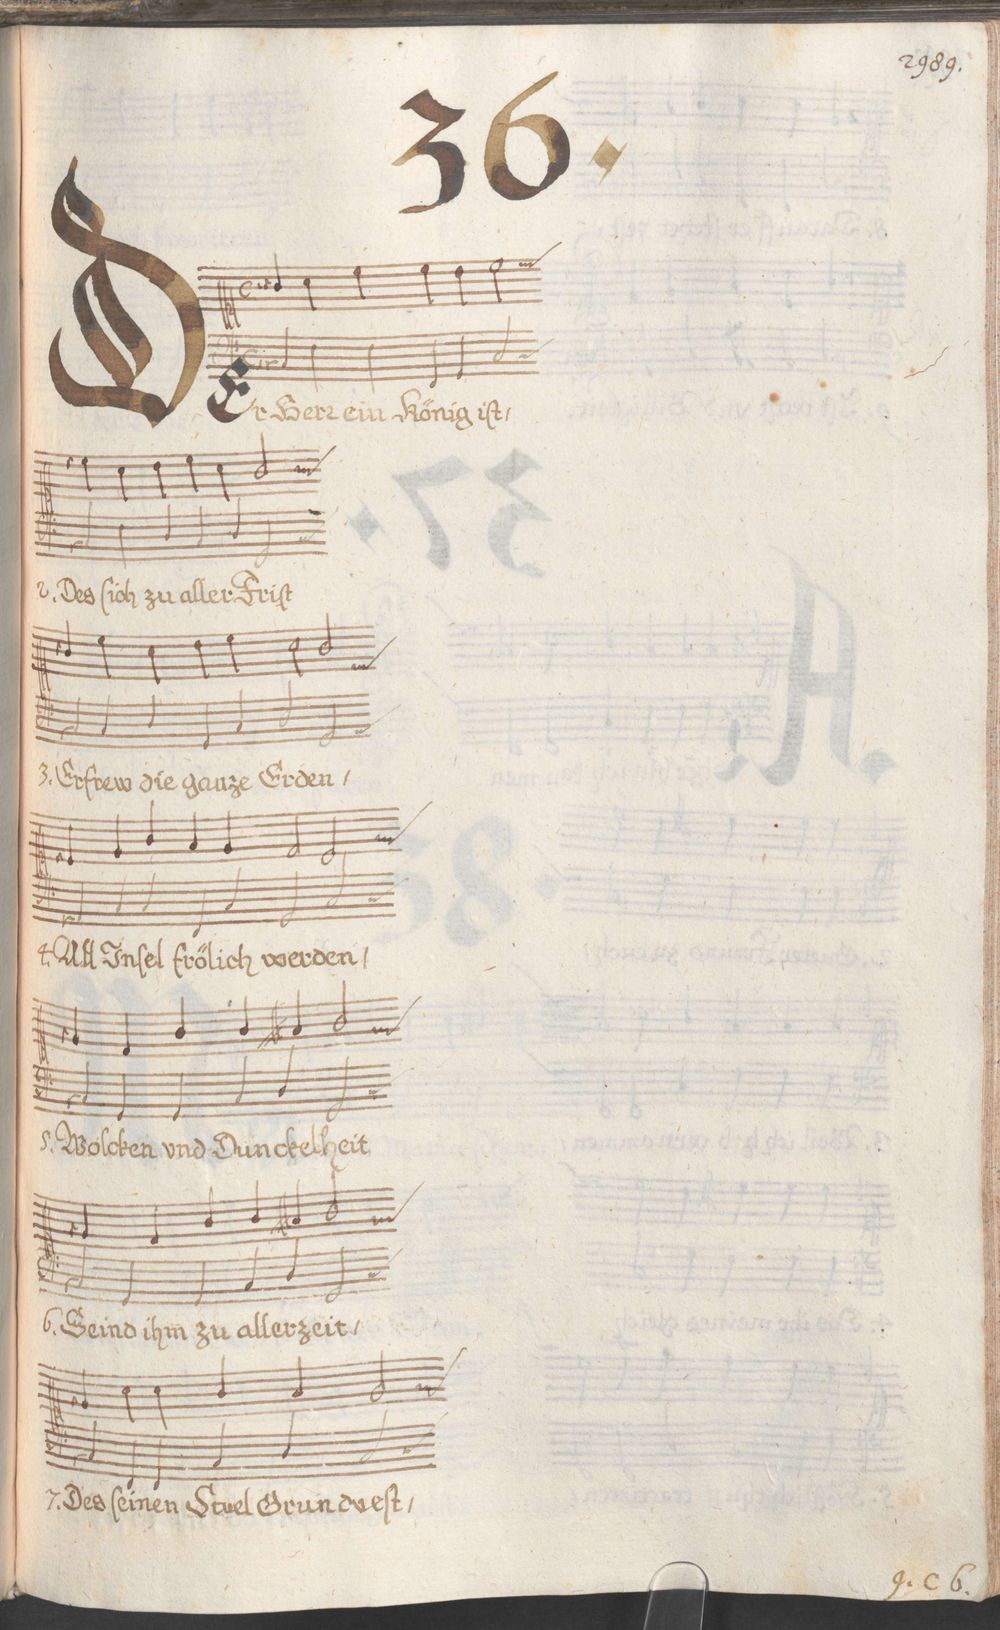 2989.
36.
DEr Herr ein König ist/
2. Des sich zu aller Frist
3. Erfrew die ganze Erden/
4. All Insel frölich werden/
5. Wolcken vnd Dunckelheit
6. Seind ihm zu allerzeit/
7. Des seinen Stuel Grundvest/
g. c 6.